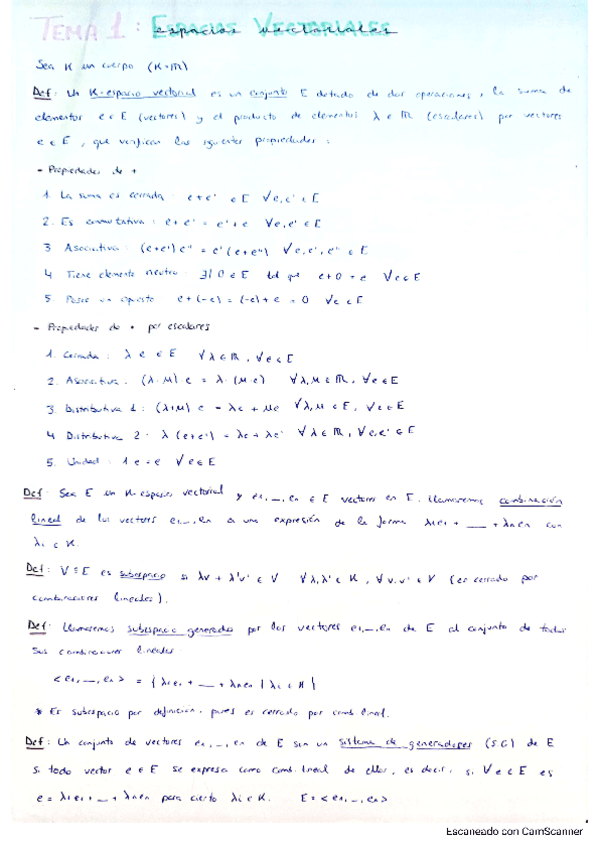 TEMA 1: Espacios Vectoriales
Sea K un cuerpo (K=ℝ)
Def: Un K-espacio vectorial es un conjunto E dotado de dos operaciones, la suma de
elementos e ∈ E (vectores) y el producto de elementos λ ∈ ℝ (escalares) por vectores
e ∈ E, que verifican las siguientes propiedades:
- Propiedades de +
1. La suma es cerrada: e+e' ∈ E ∀e,e' ∈ E
2. Es conmutativa: e+e' = e'+e ∀e,e' ∈ E
3 Asociativa: (e+e')e'' = e'(e+e'') ∀e,e',e'' ∈ E
4 Tiene elemento neutro: ∃! 0 ∈ E tal que e+0 = e ∀e ∈ E
5. Posee un opuesto e+(-e) = (-e)+e = 0 ∀e ∈ E
- Propiedades de · por escalares
1. Cerrada: λ e ∈ E ∀λ ∈ ℝ, ∀e ∈ E
2. Asociativa: (λ·μ) e = λ·(μ·e) ∀λ,μ ∈ ℝ, ∀e ∈ E
3. Distributiva 1: (λ+μ) e = λe + μe ∀λ,μ ∈ E, ∀e ∈ E
4 Distributiva 2: λ (e+e') = λe + λe' ∀λ ∈ ℝ, ∀e,e' ∈ E
5. Unidad: 1·e = e ∀e ∈ E
Def: Sea E un K-espacio vectorial y e₁,...,eₙ ∈ E vectores en E. Llamaremos combinación
lineal de los vectores e₁,...,eₙ a una expresión de la forma λ₁e₁ + ... + λₙeₙ con
λᵢ ∈ K.
Def: V ⊆ E es subespacio si λv + λ'v' ∈ V ∀λ,λ' ∈ K, ∀v,v' ∈ V (es cerrado por
combinaciones lineales).
Def: Llamaremos subespacio generado por los vectores e₁,...,eₙ de E al conjunto de todas
sus combinaciones lineales
<e₁,...,eₙ> = {λ₁e₁ + ... + λₙeₙ | λᵢ ∈ K}
* Es subespacio por definición, pues es cerrado por comb. lineal.
Def: Un conjunto de vectores e₁,...,eₙ de E son un sistema de generadores (S.G) de E
si todo vector e ∈ E se expresa como comb. lineal de ellos, es decir, si ∀e ∈ E es
e = λ₁e₁ + ... + λₙeₙ para cierto λᵢ ∈ K. E = <e₁,...,eₙ>
Escaneado con CamScanner